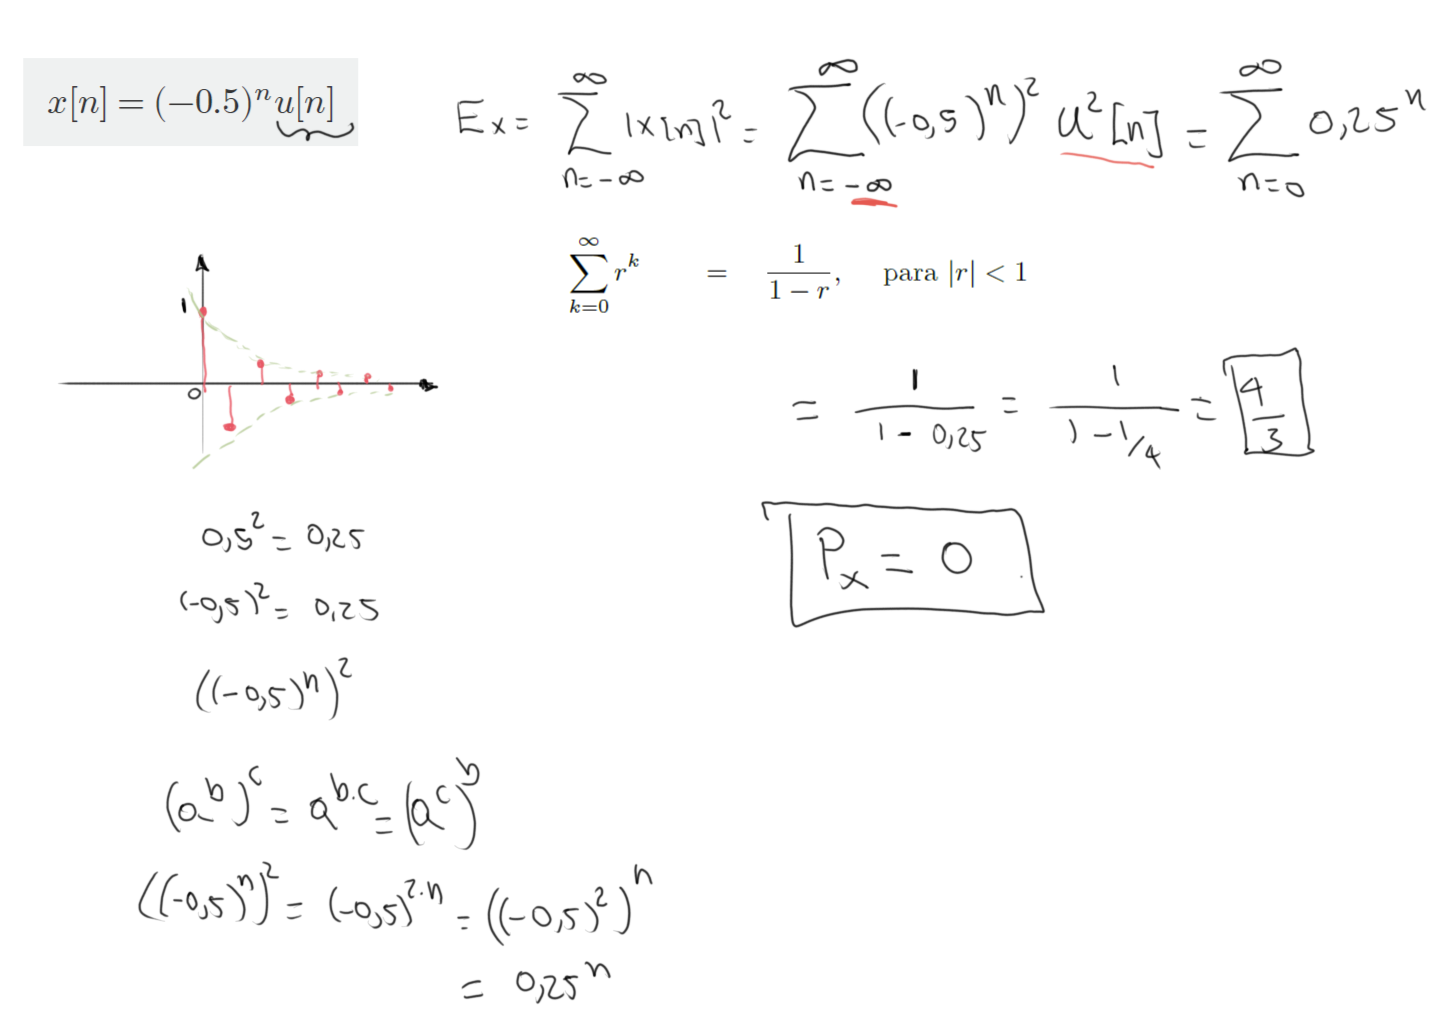 x[n] = (−0.5)ⁿu[n]
Eₓ = ∞∑n=-∞ |x[n]|² = ∞∑n=-∞ ((-0,5)ⁿ)² u²[n] = ∞∑n=0 0,25ⁿ
∞∑k=0 rᵏ = 1/(1 − r), para |r| < 1
1
0
= 1/(1 - 0,25) = 1/(1 - 1/4) = 4/3
Pₓ = 0
0,5² = 0,25
(-0,5)² = 0,25
((-0,5)ⁿ)²
(aᵇ)ᶜ = aᵇ·ᶜ = (aᶜ)ᵇ
((-0,5)ⁿ)² = (-0,5)²·ⁿ = ((-0,5)²)ⁿ
= 0,25ⁿ